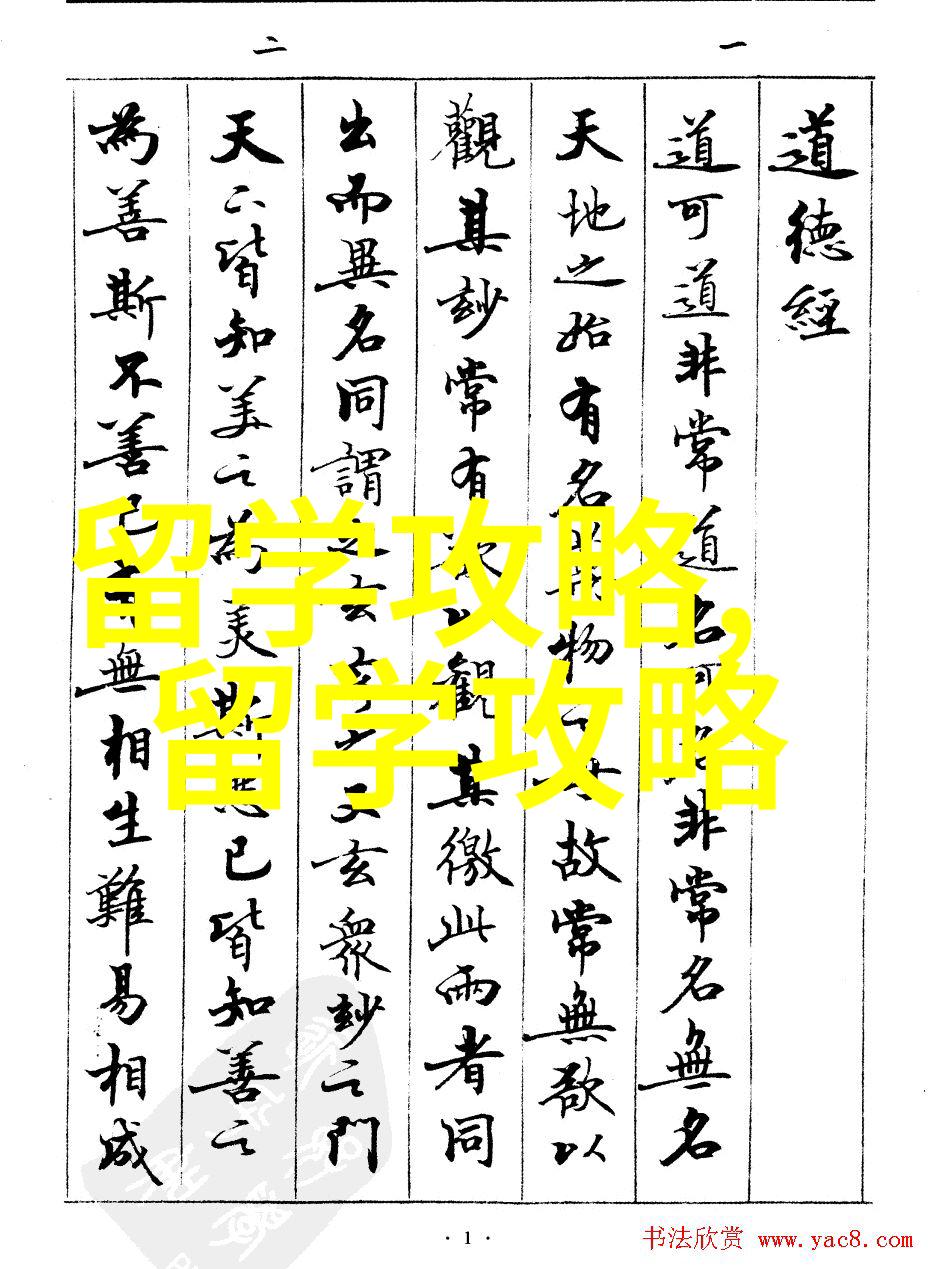 一
二
道德經
道可道非常道名可名非常名無名
天地之始有名萬物之母故常無欲以
觀其玅常有欲以觀其徼此兩者同
出而異名同謂之玄玄之又玄眾玅之門
天下皆知美之為美斯惡已皆知善之
為善斯不善已有無相生難易相成
留学攻略,
留学攻略
· 1 ·
书法欣赏 www.yac8.com